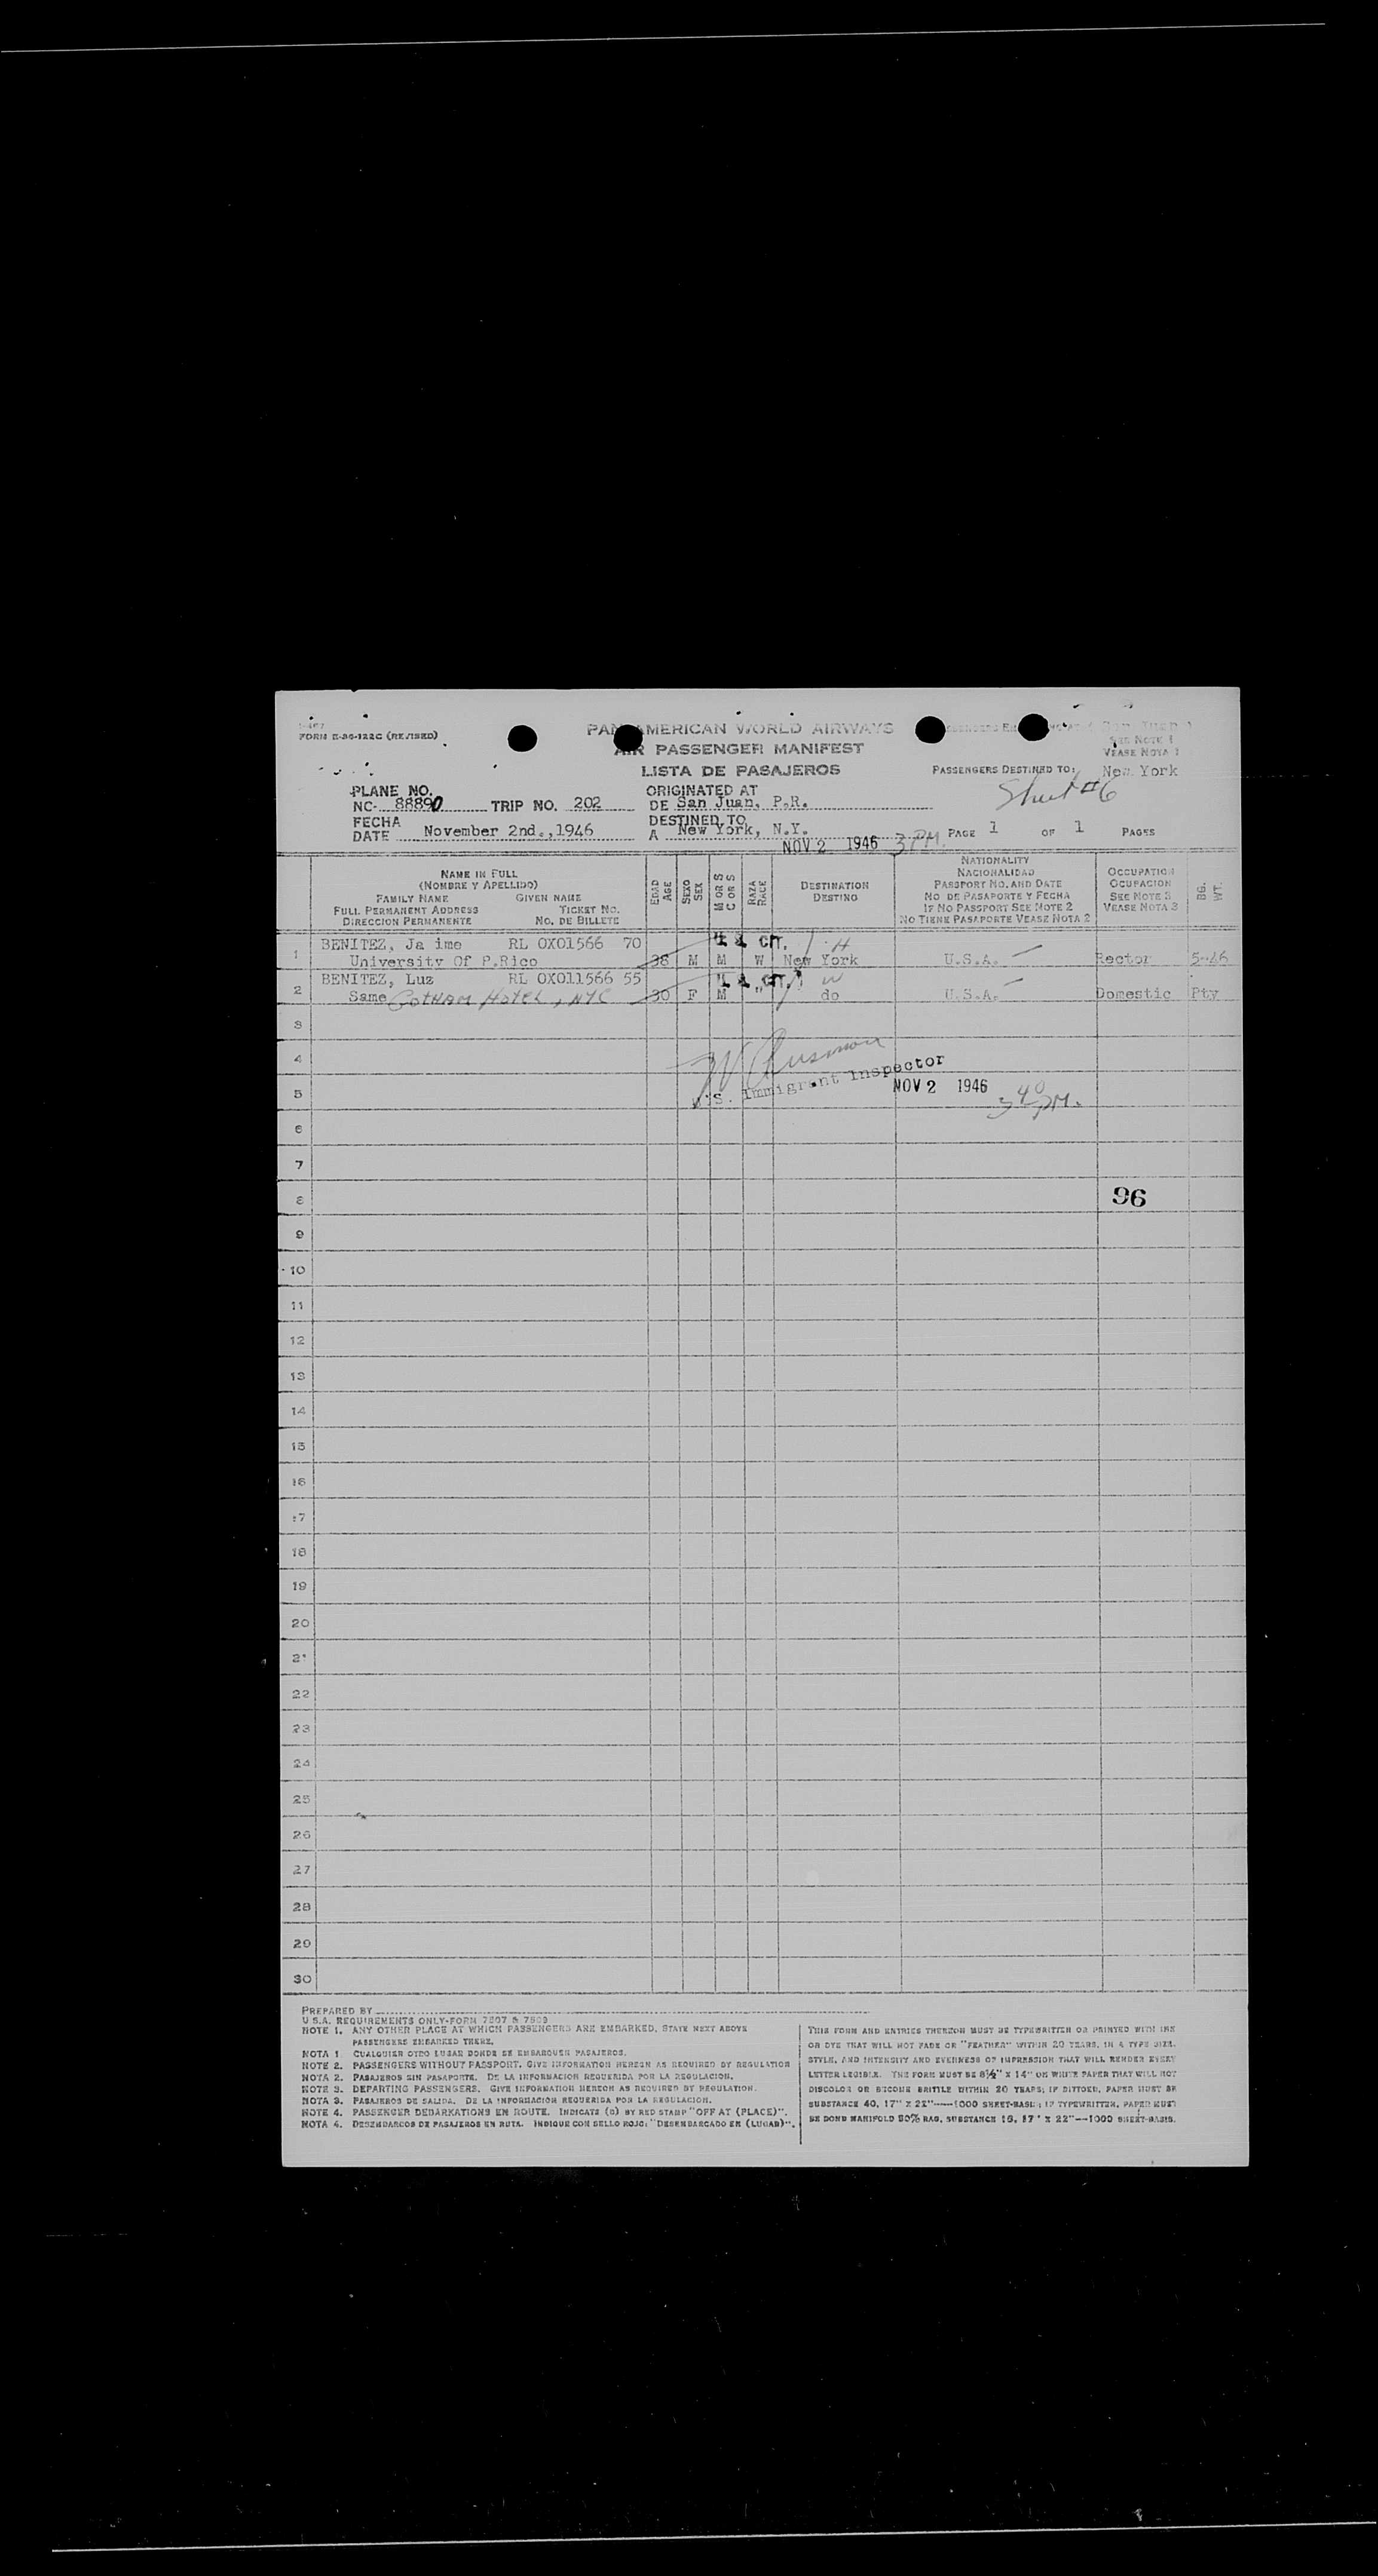 FORM E-96-122C (REVISED)
PAN AMERICAN WORLD AIRWAYS
AIR PASSENGER MANIFEST
SEE NOTE 1
VEASE NOTA 1
LISTA DE PASAJEROS
PASSENGERS DESTINED TO: New York
Sheet #6
PLANE NO.
NC- 88890 TRIP NO. 202
ORIGINATED AT
DE San Juan, P.R.
FECHA
DATE November 2nd.,1946
DESTINED TO
A New York, N.Y.
NOV 2 1946 3 PM.
PAGE 1 OF 1 PAGES
NAME IN FULL
(NOMBRE Y APELLIDO)
FAMILY NAME GIVEN NAME
FULL PERMANENT ADDRESS TICKET NO.
DIRECCION PERMANENTE NO. DE BILLETE
EDAD
AGE
SEXO
SEX
M OR S
C OR S
RAZA
RACE
DESTINATION
DESTINO
NATIONALITY
NACIONALIDAD
PASSPORT NO. AND DATE
NO DE PASAPORTE Y FECHA
IF NO PASSPORT SEE NOTE 2
NO TIENE PASAPORTE VEASE NOTA 2
OCCUPATION
OCUPACION
SEE NOTE 3
VEASE NOTA 3
BG.
WT.
1 BENITEZ, Ja ime RL OX01566 70 CIT. H
University Of P.Rico 38 M M W New York U.S.A. Rector 5-46
2 BENITEZ, Luz RL OX011566 55 CIT. W
Same GOTHAM HOTEL, NYC 30 F M " do U.S.A. Domestic Pty
3
4
U.S. Immigrant Inspector
5 NOV 2 1946 3 40 PM.
6
7
8 96
9
10
11
12
13
14
15
16
17
18
19
20
21
22
23
24
25
26
27
28
29
30
PREPARED BY
U.S.A. REQUIREMENTS ONLY-FORM 7507 & 7509
NOTE 1. ANY OTHER PLACE AT WHICH PASSENGERS ARE EMBARKED, STATE NEXT ABOVE
PASSENGERS EMBARKED THERE.
NOTA 1 CUALQUIER OTRO LUGAR DONDE SE EMBARQUEN PASAJEROS.
NOTE 2. PASSENGERS WITHOUT PASSPORT. GIVE INFORMATION HEREON AS REQUIRED BY REGULATION
NOTA 2. PASAJEROS SIN PASAPORTE. DE LA INFORMACION REQUERIDA POR LA REGULACION.
NOTE 3. DEPARTING PASSENGERS. GIVE INFORMATION HEREON AS REQUIRED BY REGULATION.
NOTA 3. PASAJEROS DE SALIDA. DE LA INFORMACION REQUERIDA POR LA REGULACION.
NOTE 4. PASSENGER DEBARKATIONS EN ROUTE. INDICATE (S) BY RED STAMP "OFF AT (PLACE)".
NOTA 4. DESEMBARCOS DE PASAJEROS EN RUTA. INDIQUE CON SELLO ROJO: "DESEMBARCADO EN (LUGAR)".
THIS FORM AND ENTRIES THEREON MUST BE TYPEWRITTEN OR PRINTED WITH INK
OR DYE THAT WILL NOT FADE OR "FEATHER" WITHIN 20 YEARS, IN A TYPE SIZE,
STYLE, AND INTENSITY AND EVENNESS OF IMPRESSION THAT WILL RENDER EVERY
LETTER LEGIBLE. THE FORM MUST BE 8½" X 14" ON WHITE PAPER THAT WILL NOT
DISCOLOR OR BECOME BRITTLE WITHIN 20 YEARS; IF DITTOED, PAPER MUST BE
SUBSTANCE 40, 17" X 22"----1000 SHEET-BASIS; IF TYPEWRITTEN, PAPER MUST
BE BOND MANIFOLD 50% RAG, SUBSTANCE 16, 17" X 22"--1000 SHEET-BASIS.